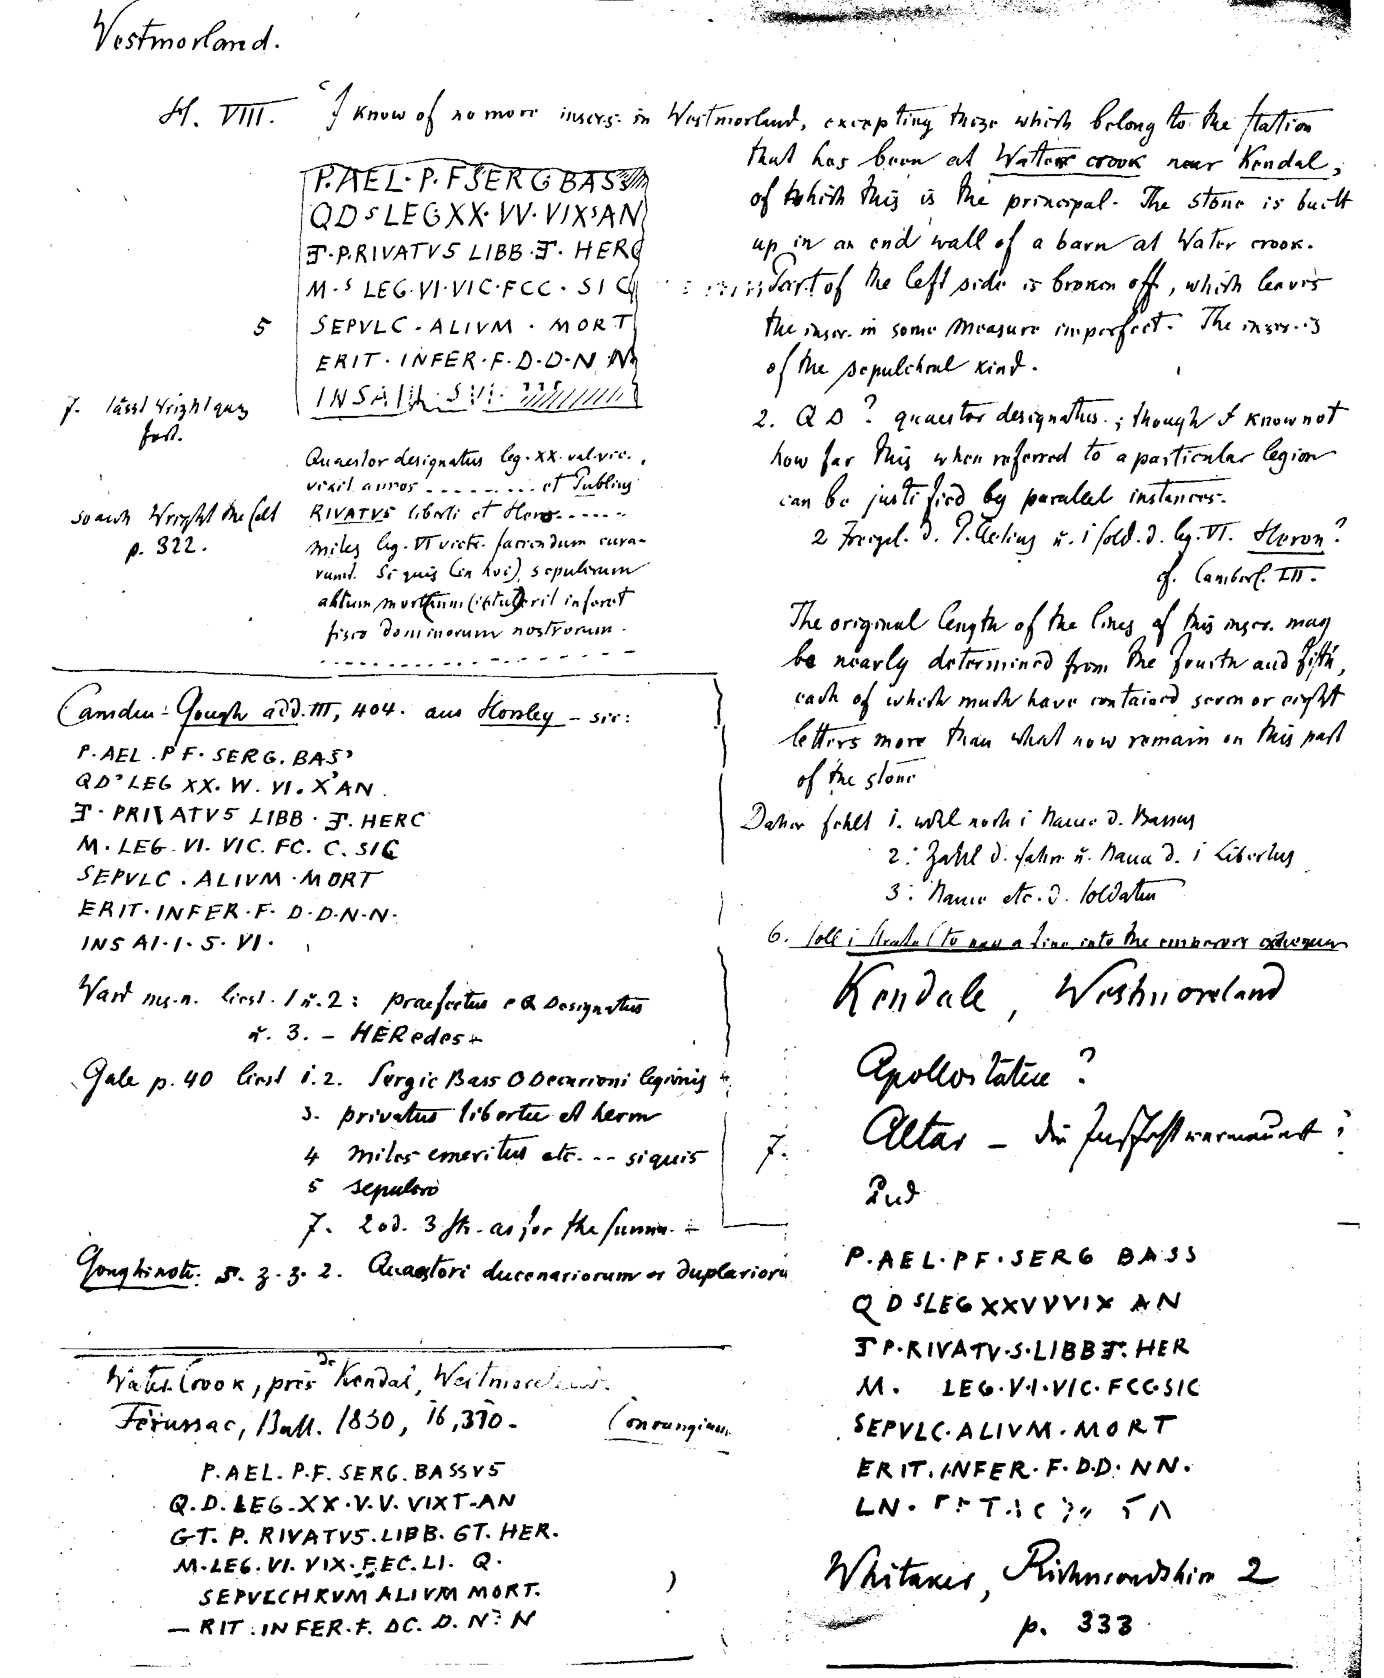 Westmorland.
H. VIII. "I know of no more inscrs. in Westmorland, excepting those which belong to the station
that has been at Water crook near Kendal,
of which this is the principal. The stone is built
up in an end wall of a barn at Water crook.
Part of the left side is broken off, which leaves
the inscr. in some measure imperfect. The inscr. is
of the sepulchral kind.
P.AEL.P.FSERGBASS
QDSLEGXX.VV.VIXSAN
P.RIVATVS LIBB. HERC
M.S LEG.VI.VIC.FCC. SIC
5 SEPVLC.ALIVM.MORT
ERIT.INFER.F.D.D.N N
INSA SVI
7. lässt Wright ganz
fort.
so auch Wright the Celt
p. 322.
Quaestor designatus leg. XX. val. vic.,
vixit annos ......... et Publius
RIVATVS liberti et Hero.....
miles leg. VI victr. faciendum cura-
runt. Si quis (in hoc) sepulcrum
alium mortuum (intul)erit inferet
fisco dominorum nostrorum.
2. Q D ? quaestor designatus.; though I know not
how far this when referred to a particular legion
can be justified by parallel instances.
2 Freigel. d. P. Aelius u. 1 sold. d. leg. VI. Heron?
cf. Cumberl. LII.
The original length of the lines of this inscr. may
be nearly determined from the fourth and fifth,
each of which must have contained seven or eight
letters more than what now remain on this part
of the stone
Daher fehlt 1. wohl noch 1 Name d. Bassus
2: Zahl d. Jahre u. Name d. 1 Libertus
3: Name etc. d. Soldaten
6. soll to pay a fine into the emperors exchequer
Camden-Gough add. III, 404. aus Horsley - sic:
P.AEL.PF.SERG.BAS'
QD'LEG XX.W.VI.X'AN
PRIVATVS LIBB. HERC
M.LEG.VI.VIC.FC.C.SIC
SEPVLC.ALIVM.MORT
ERIT.INFER.F.D.D.N.N.
INS AI.I.S.VI.
Ward ms.n. liest 1 u. 2: praefectus e Q Designatus
u. 3. - HERedes
Gale p. 40 liest 1.2. Sergio Bass Q Decurioni legionis
3. privatus libertus et herm
4 miles emeritus etc. -- siquis
5 sepulcro
7. 2 od. 3 as for the
Goughinote: Quaestori ducenariorum or duplarioru
Water Crook, près de Kendal, Westmoreland.
Férussac, Bull. 1830, 16, 370.
P.AEL.P.F.SERG.BASSVS
Q.D.LEG.XX.V.V.VIXT.AN
GT.P.RIVATVS.LIBB.GT.HER.
M.LEG.VI.VIX.FEC.LI.Q.
SEPVLCHRVM ALIVM MORT.
— RIT.INFER.F.DC.D.N.N
Kendale, Westmoreland
Apollostatue ?
Altar —
7. Und
P.AEL.PF.SERG BASS
Q D SLEGXXVVVIX AN
P.RIVATV.S.LIBB.HER
M. LEG.V.I.VIC.FCC.SIC
SEPVLC.ALIVM.MORT
ERIT.INFER.F.D.D.NN.
LN.
Whitaker, Richmondshire 2
p. 333